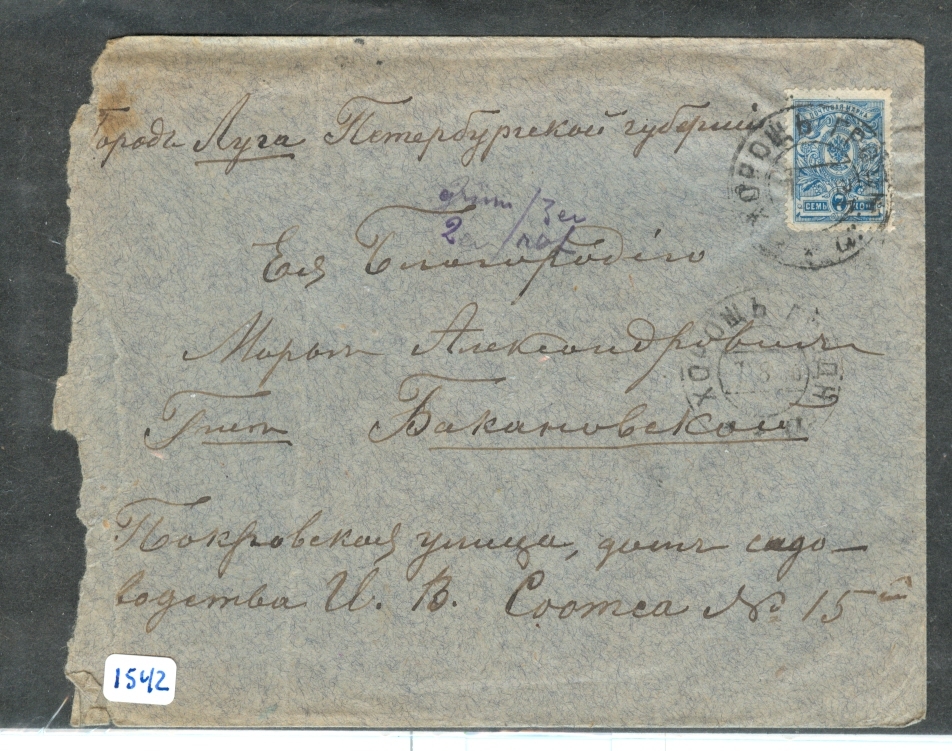 Городъ Луга Петербургской губерніи
Ея Благородію
Маріи Александровнѣ
Гжѣ Бакановской
Покровская улица, домъ садо-
водства И. В. Соотса № 15-й
СЕМЬ 7 КОП
ХОРОЩЬ ГРОДН.
1542